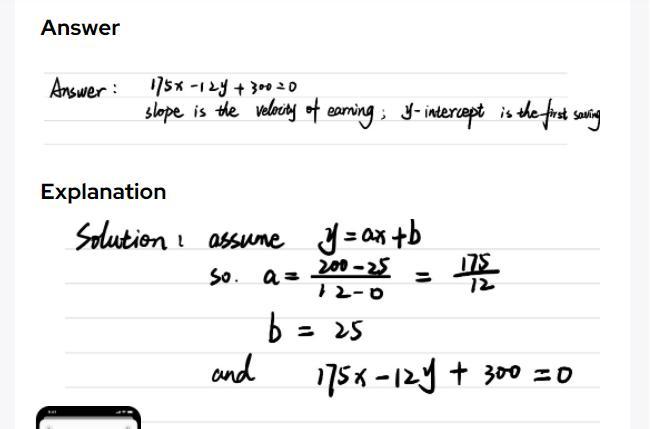 Answer
Answer: 175x - 12y + 300 = 0
slope is the velocity of earning; y-intercept is the first saving
Explanation
Solution: assume y = ax + b
so. a = \frac{200-25}{12-0} = \frac{175}{12}
b = 25
and 175x - 12y + 300 = 0